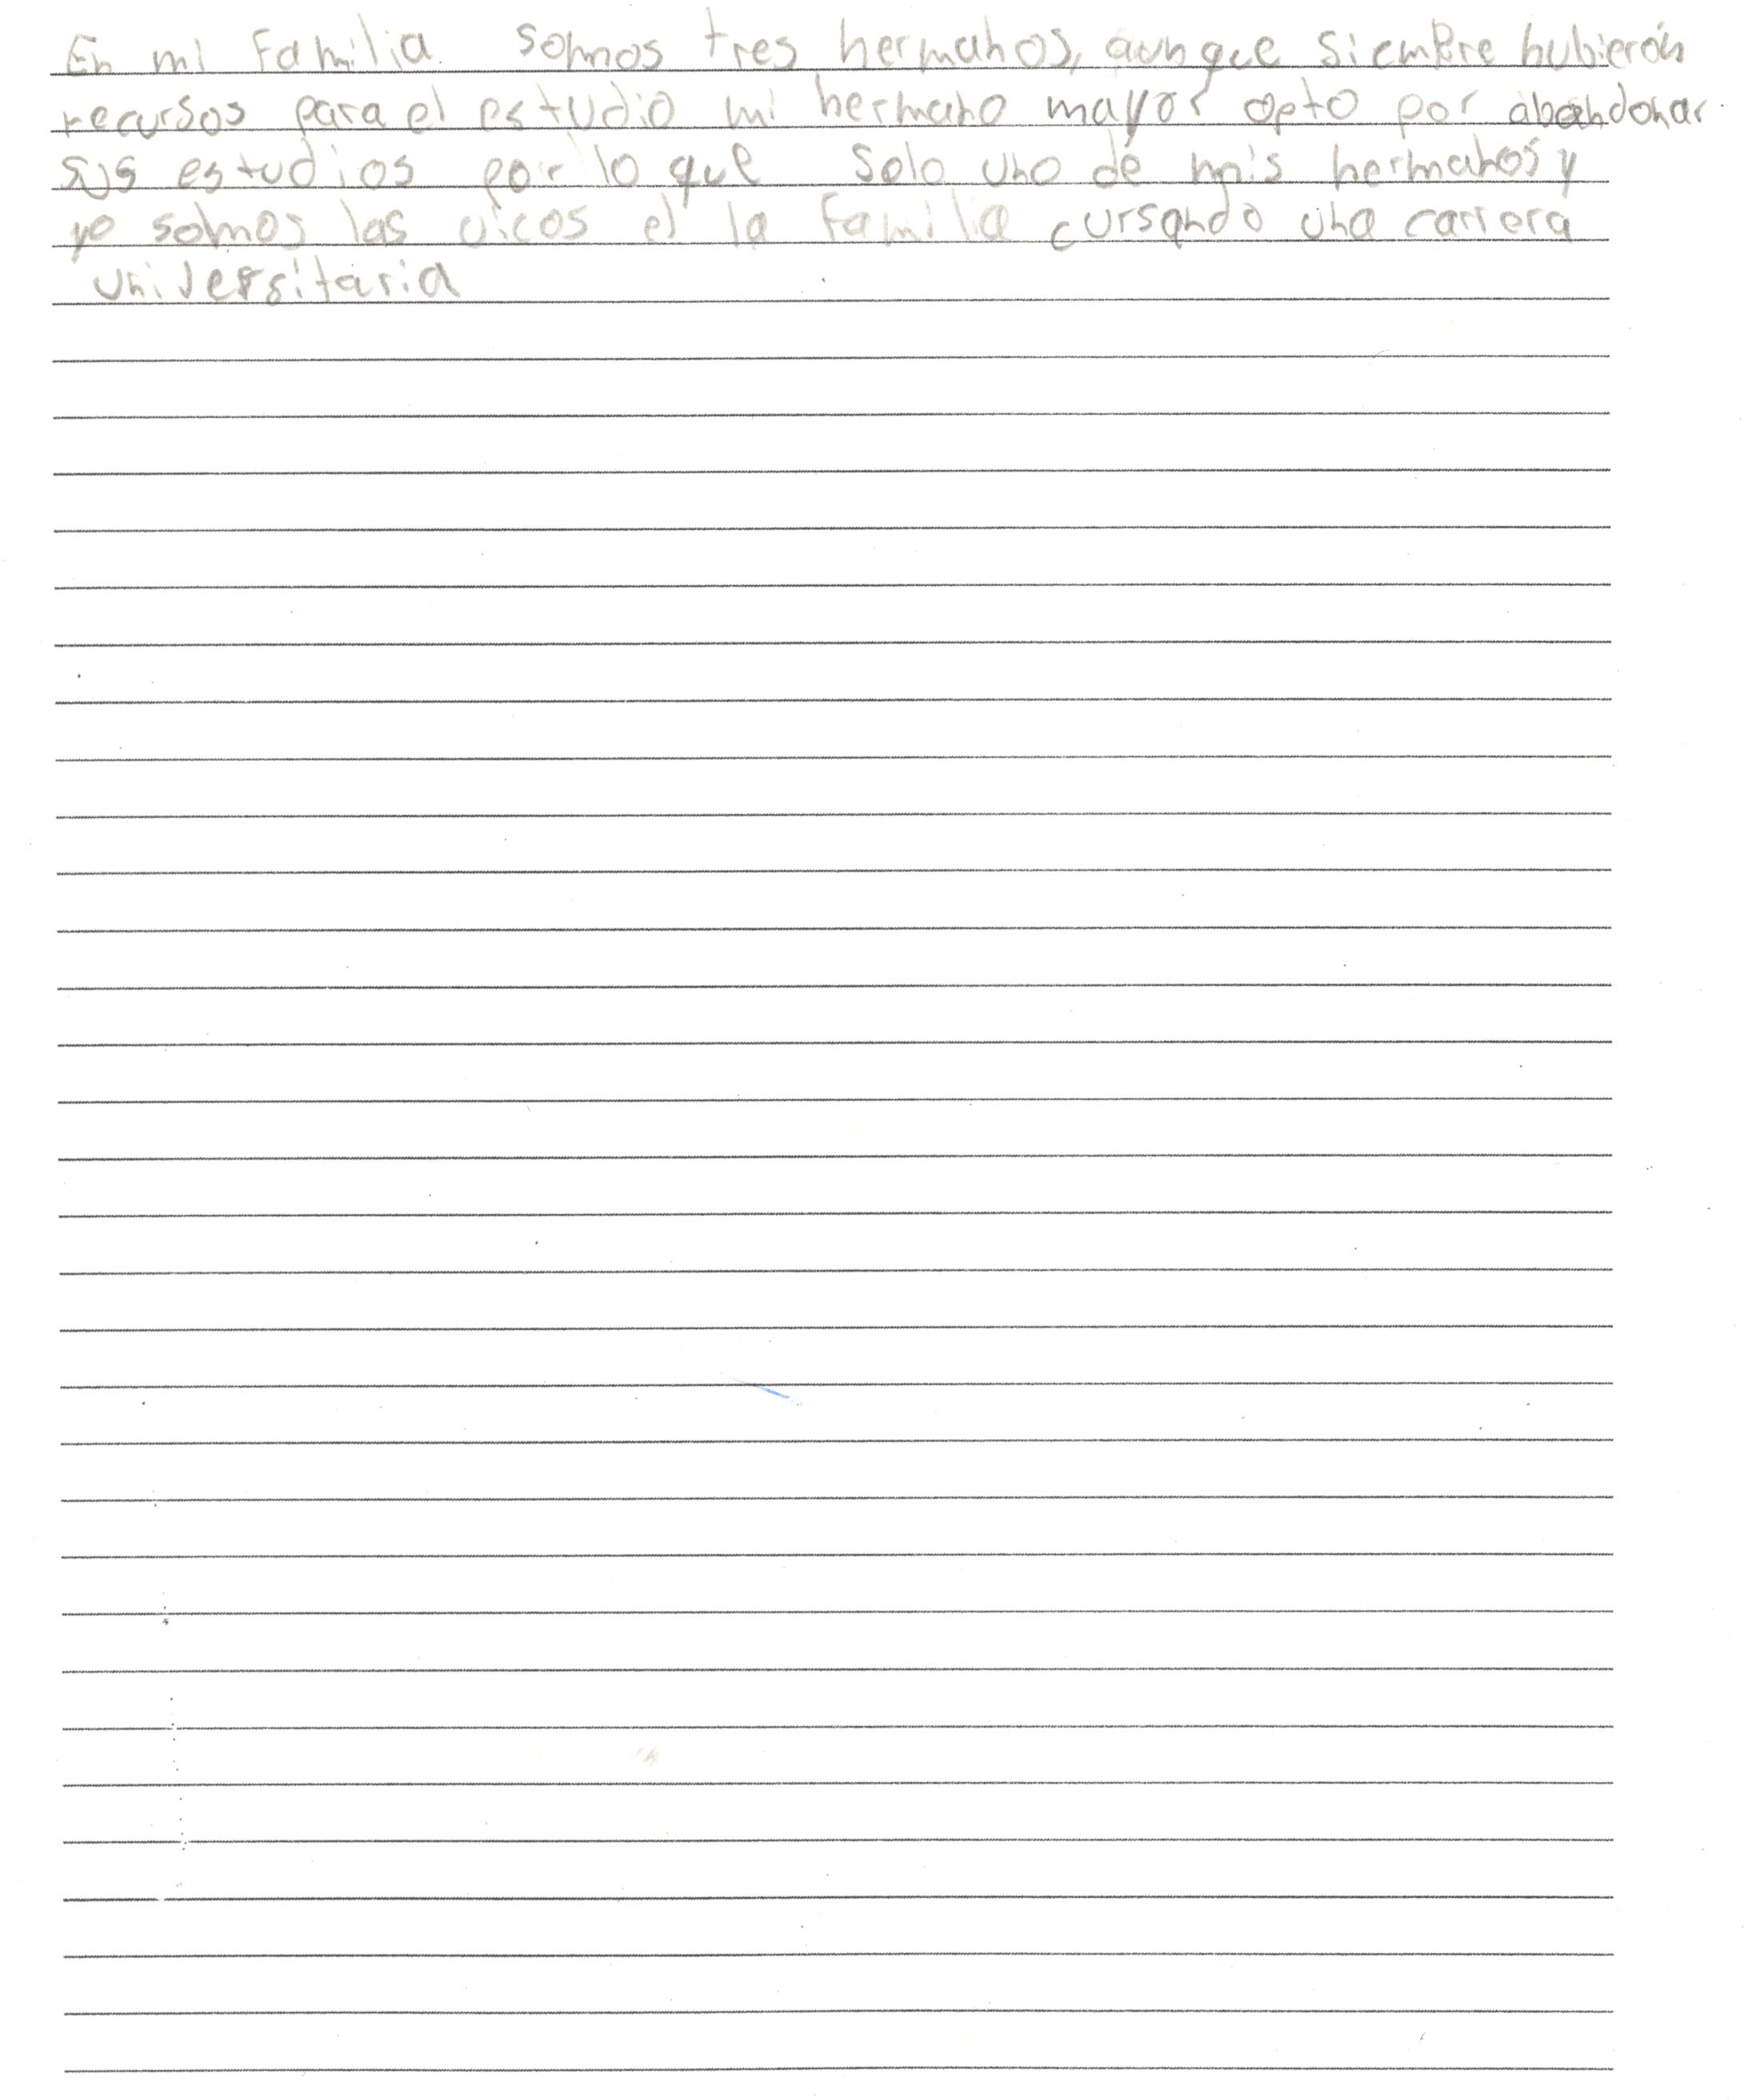 En mi familia somos tres hermanos, aunque siempre hubierón
recursos para el estudio mi hermano mayor opto por abandonar
sus estudios por lo que solo uno de mis hermanos y
yo somos las uicos el la familia cursando una carrera
universitaria